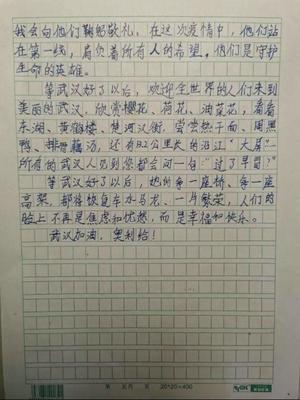 我会向他们鞠躬敬礼。在这次疫情中，他们站
在第一线，肩负着所有人的希望。他们是守护
生命的英雄。
等武汉好了以后，欢迎全世界的人们来到
美丽的武汉，欣赏樱花、荷花、油菜花，看看
东湖、黄鹤楼、楚河汉街，尝尝热干面、周黑
鸭、排骨藕汤，还有82公里长的沿江“大屏”
所有的武汉人见到你都会问一句“过了早冒？”
等武汉好了以后，她的每一座桥、每一座
高架，都将恢复车水马龙、一片繁荣，人们的
脸上不再是焦虑和忧愁，而是幸福和快乐。
武汉加油，奥利给！
第 页共 页 20*20=400